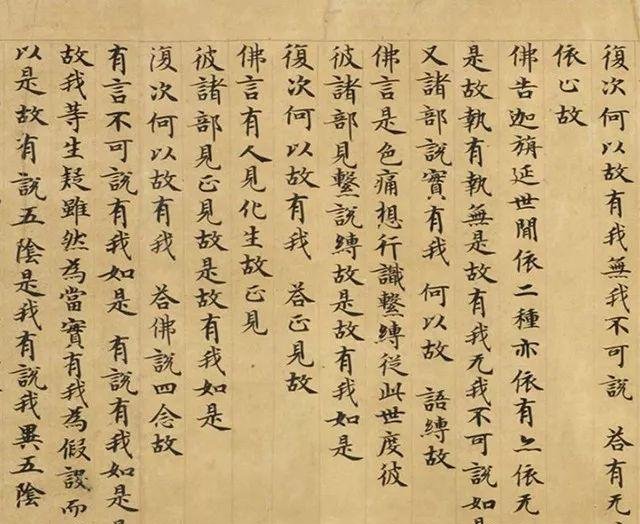 復次何以故有我無我不可說 荅有无
依止故
佛告迦旃延世間依二種亦依有亦依无
是故執有執無是故有我无我不可說如
又諸部說實有我 何以故 語縛故
佛言是色痛想行識繫縛從此世度彼
彼諸部見繫說縛故是故有我如是
復次何以故有我 荅正見故
佛言有人見化生故正見
彼諸部見正見故是故有我如是
復次何以故有我 荅佛說四念故
有言不可說有我如是 有說有我如是
故我等生疑雖然為當實有我為假設而
以是故有說五陰是我有說我異五陰